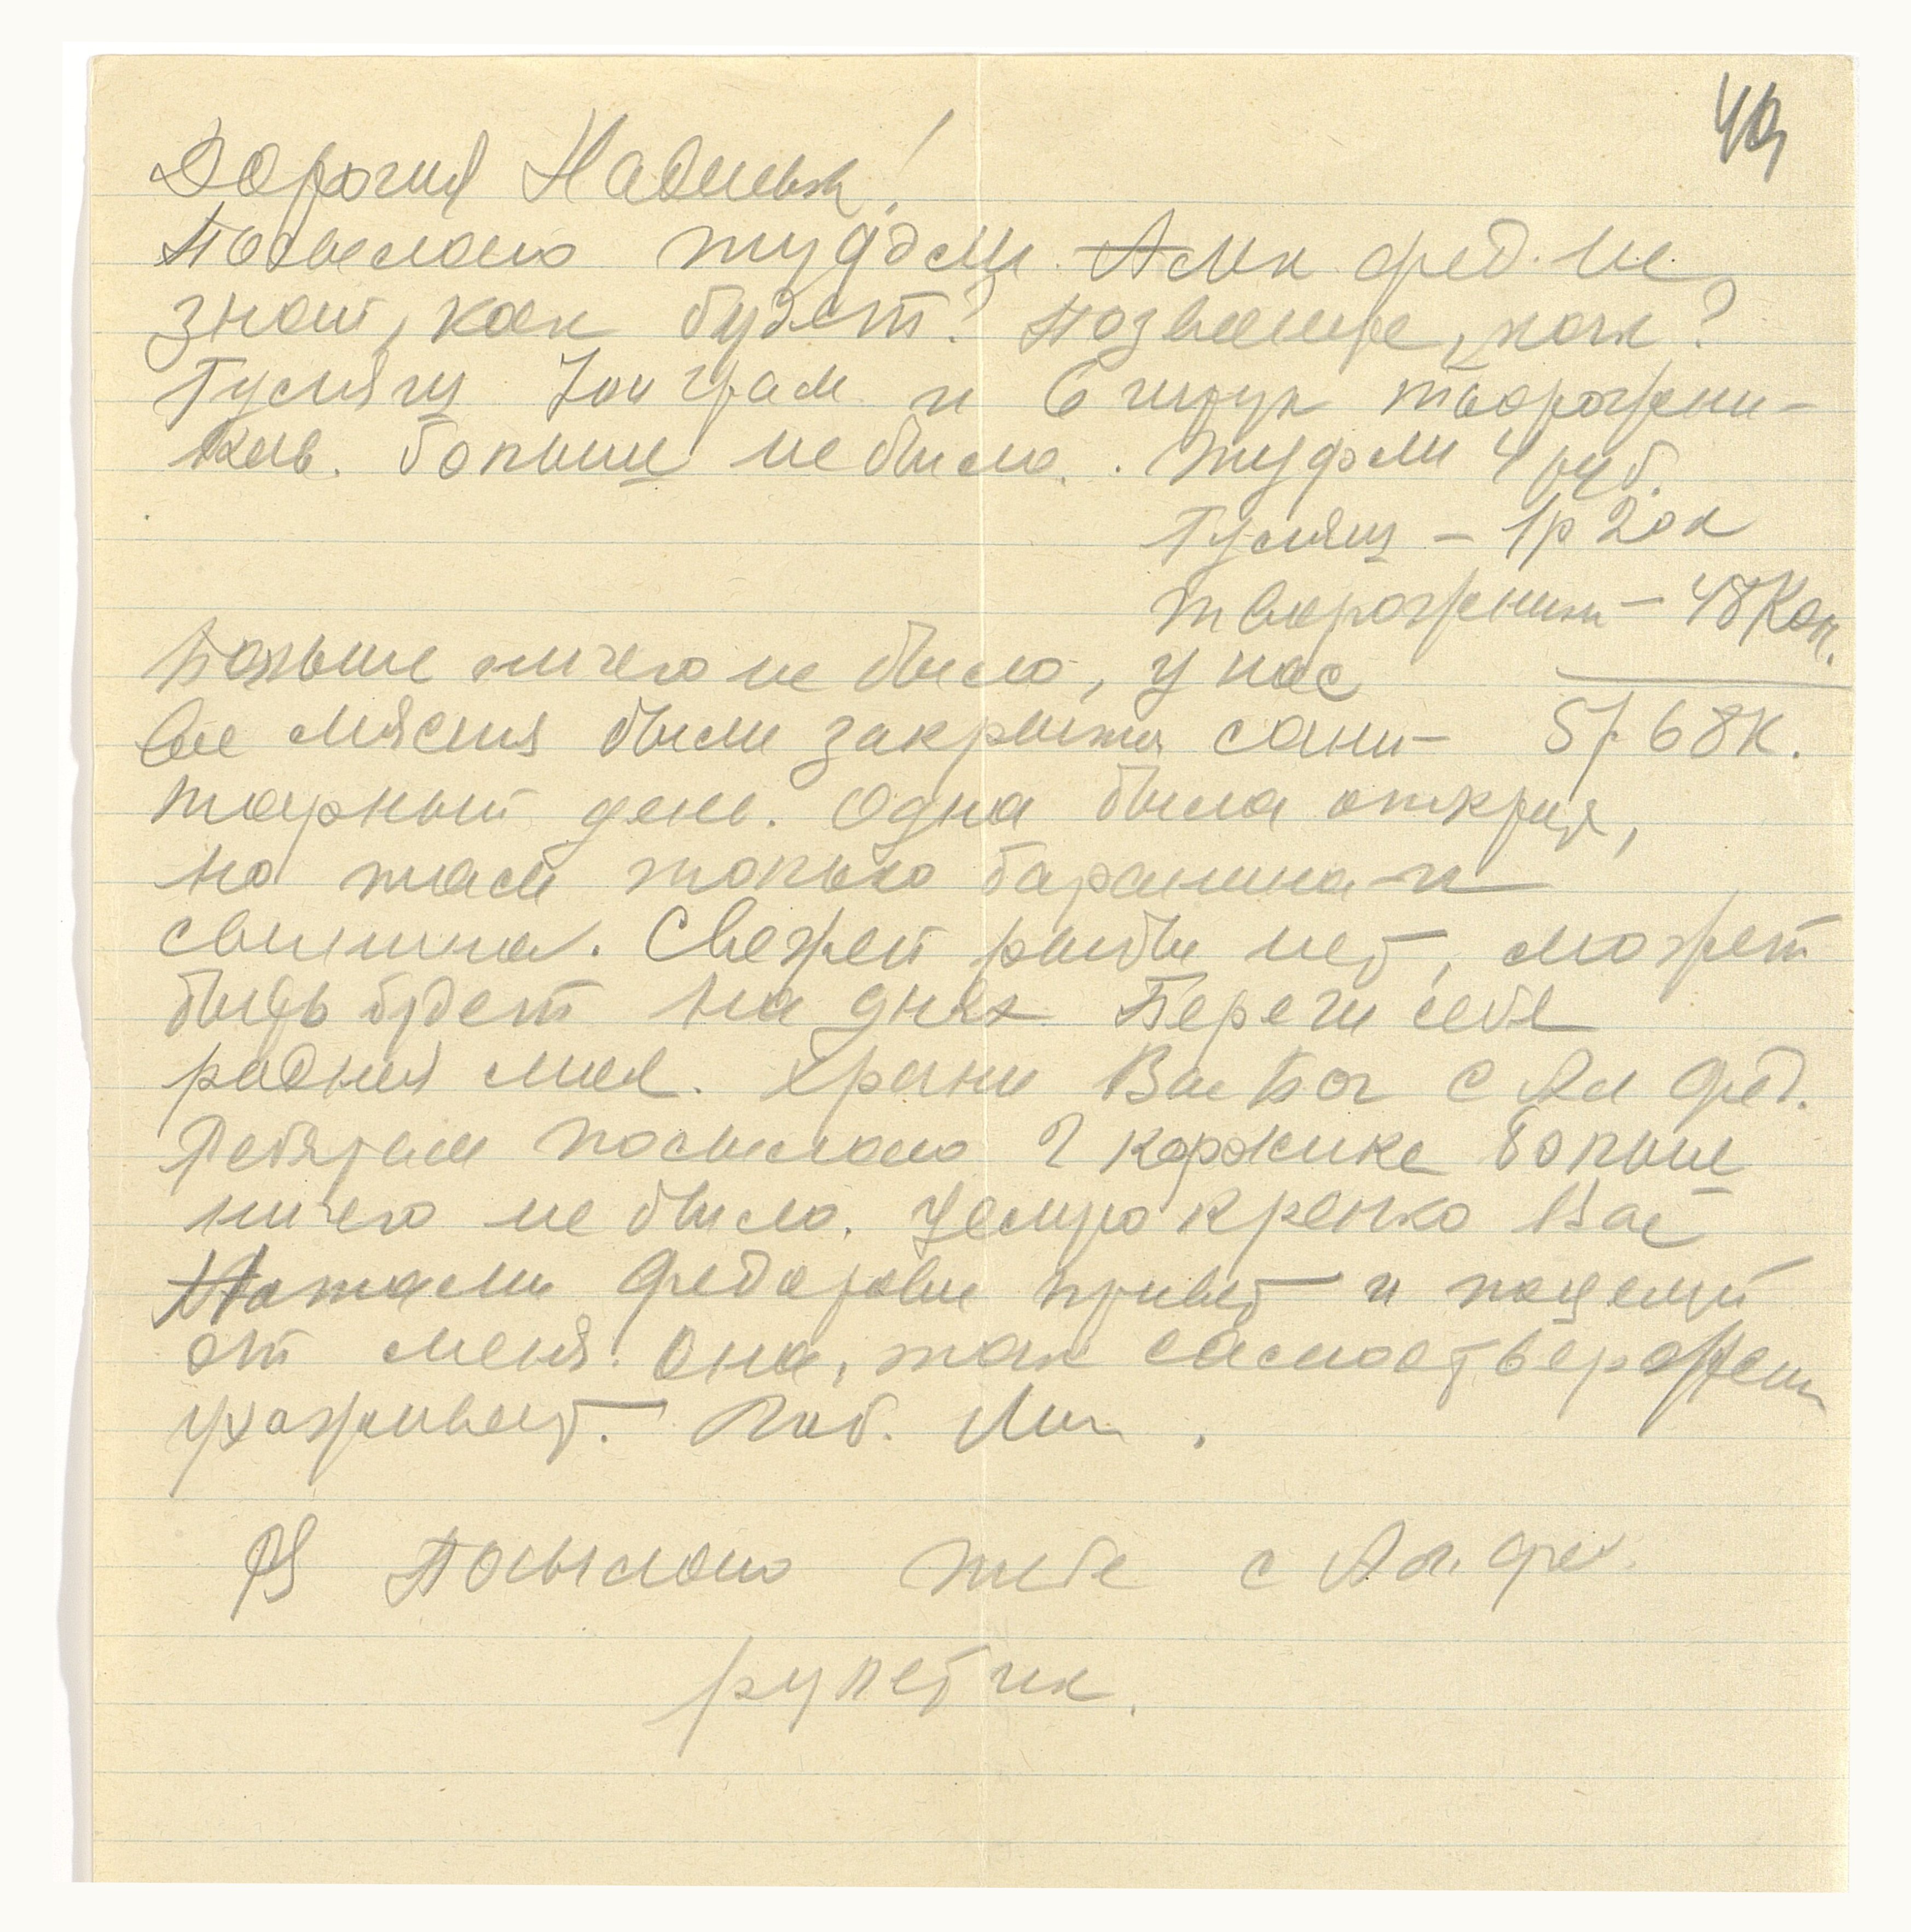 49
Дорогая Наденька!
Посылаю туфли. Алек. фед. не
знает, как будет? Позвоните, как?
Гусятины 700 грам и 6 штук творожни-
ков. Больше не было. Туфли 4 руб.
1р 20к
творожники – 48 Коп.
Больше ничего не было, у нас
5р 68к.
все мясныя были закрыты сани-
тарный день. Одна была открыта,
но там только баранина и
свинина. Свежей рыбы нет, может
быть будет на днях. Береги себя
родная моя. Храни Вас Бог с Ал фед.
Ребятам посылаю 2 коржика больше
ничего не было. Целую крепко Вас
Наталии Федоровне привет и поцелуй
от меня. Она, так самоотверженно
ухаживает. Люб.
PS Посылаю тебе с Ал. фед.
рулетик.